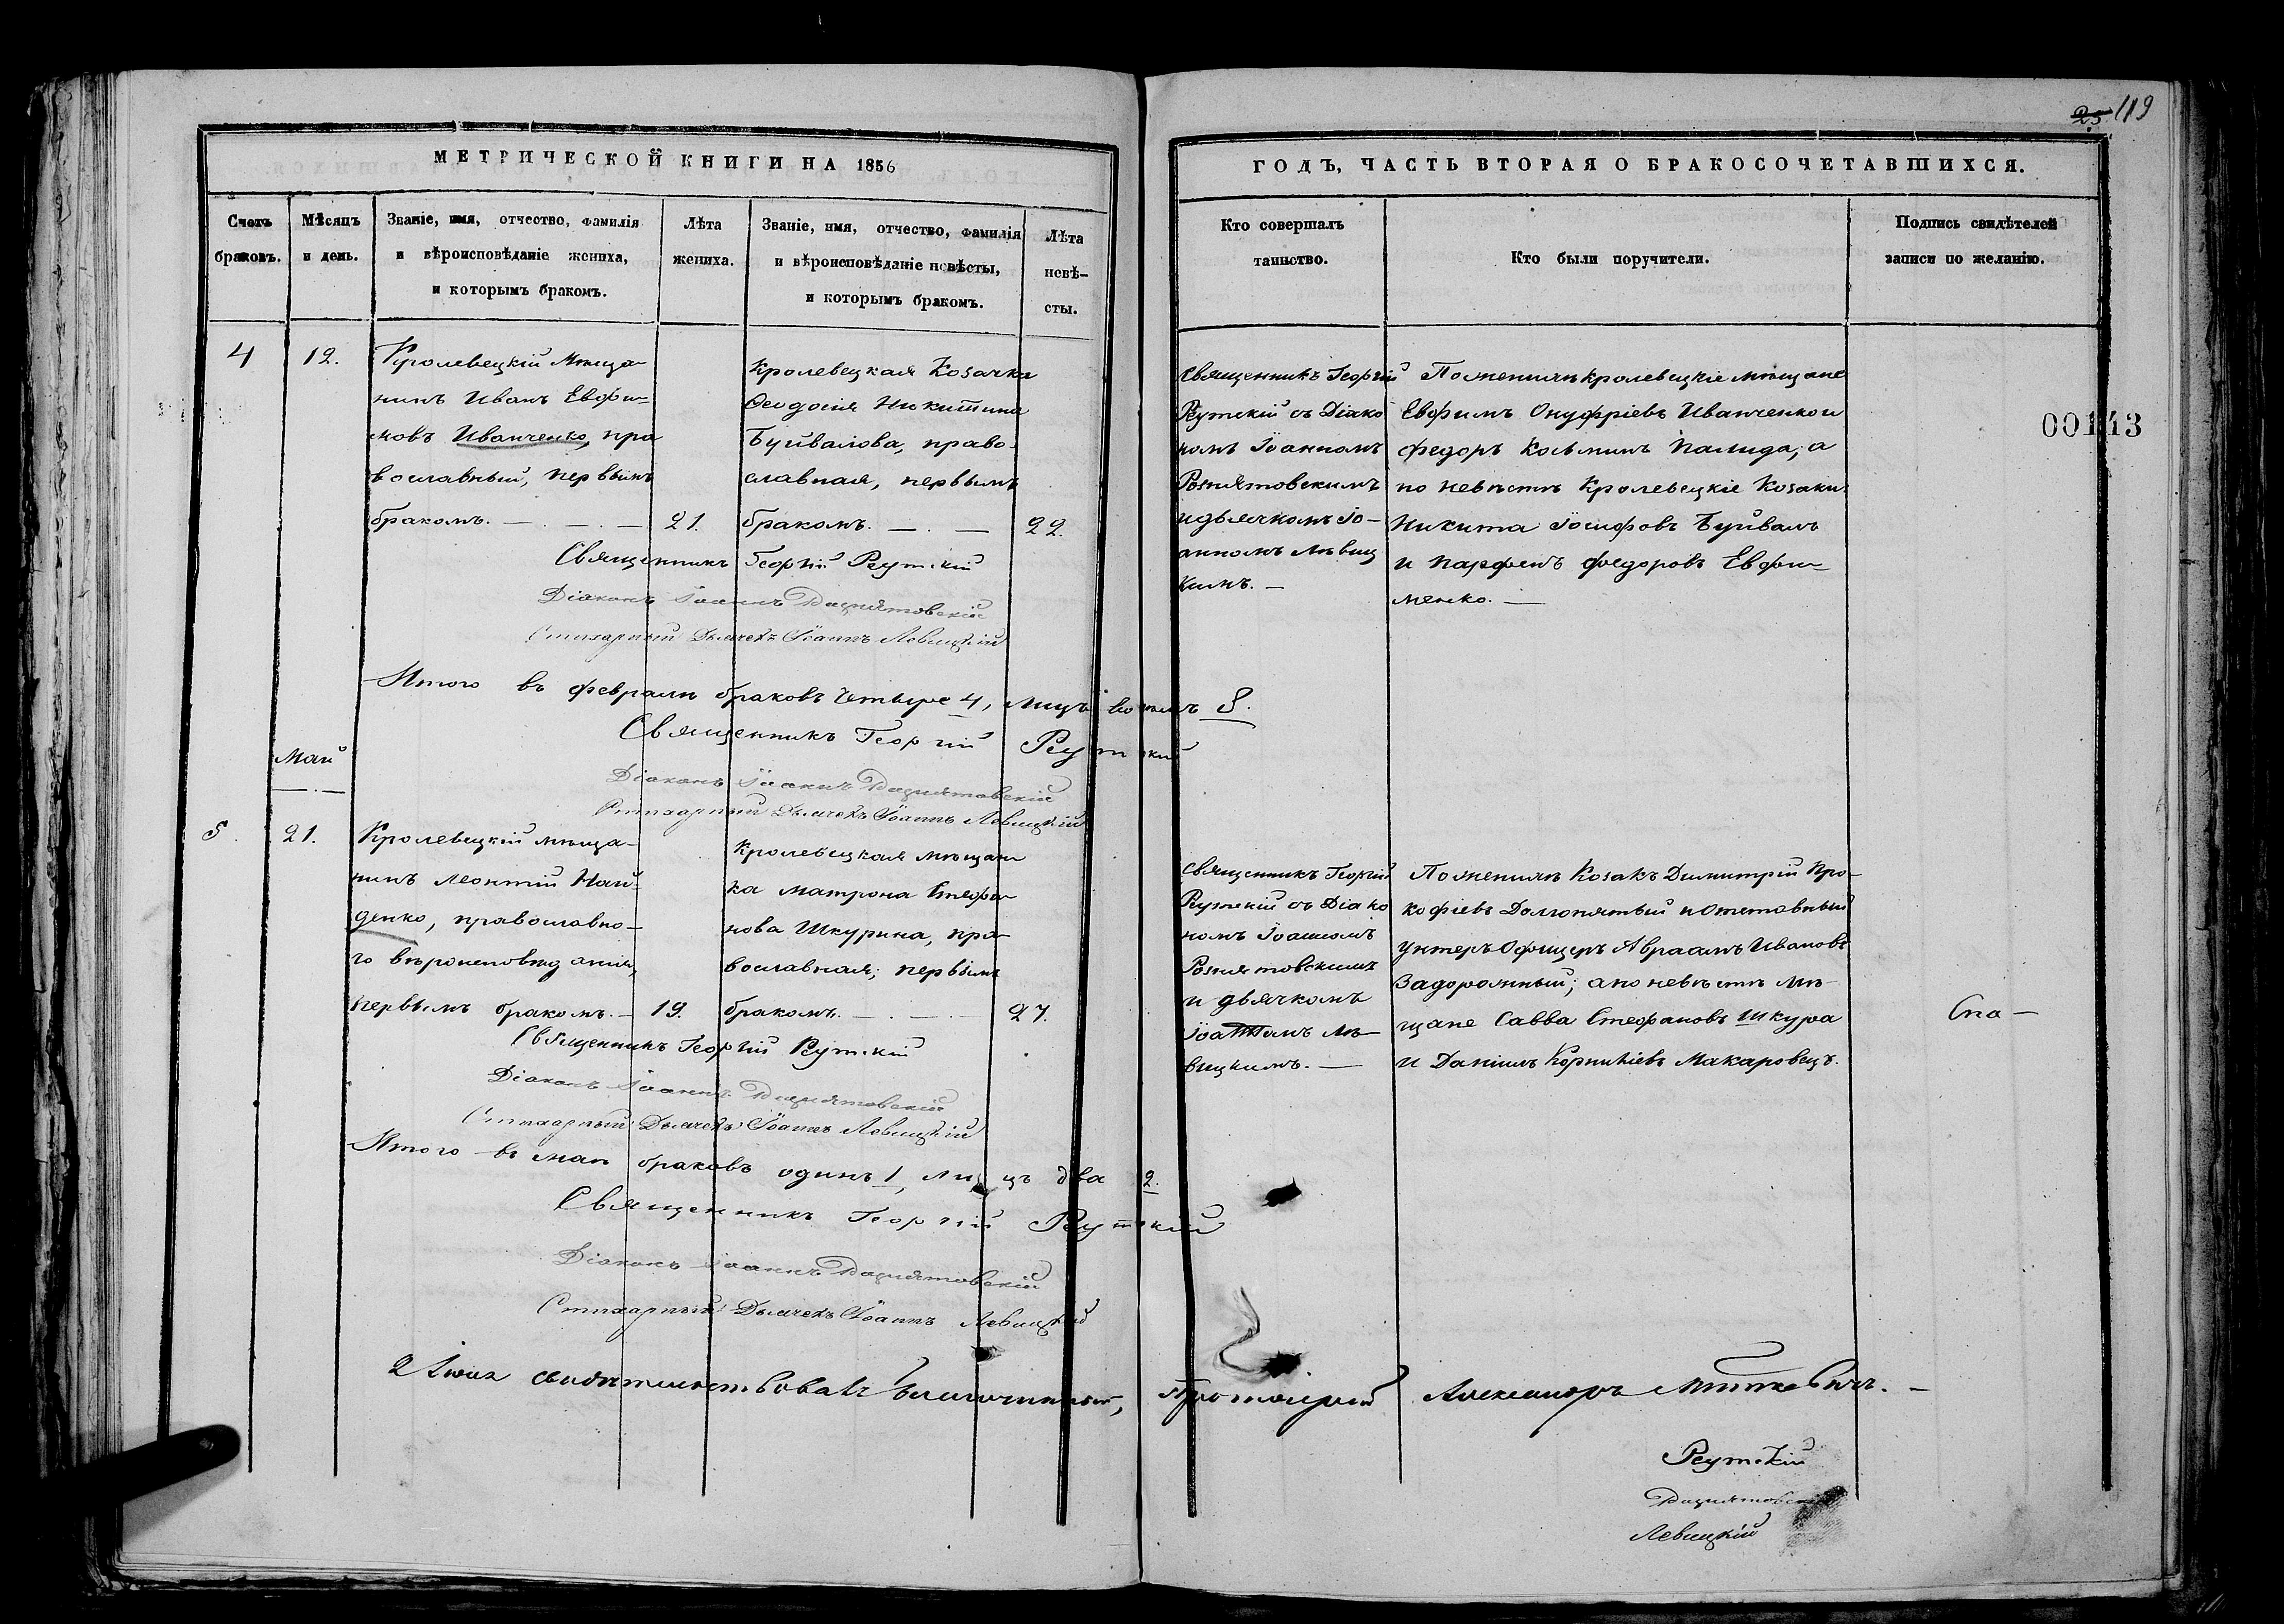 25 119
МЕТРИЧЕСКОЙ КНИГИ НА 1856
ГОДЪ, ЧАСТЬ ВТОРАЯ О БРАКОСОЧЕТАВШИХСЯ.
Счетъ браковъ.
Мѣсяцъ и день.
Званіе, имя, отчество, фамилія
и вѣроисповѣданіе жениха,
и которымъ бракомъ.
Лѣта
жениха.
Званіе, имя, отчество, фамилія
и вѣроисповѣданіе невѣсты,
и которымъ бракомъ.
Лѣта
невѣ-
сты.
Кто совершалъ
таинство.
Кто были поручители.
Подпись свидѣтелей
записи по желанію.
00143
4
12.
Кролевецкій Мѣща-
нинъ Иванъ Евфи-
мовъ Иванченко, пра
вославный, первымъ
бракомъ. —
21.
Кролевецкая Козачка
Ѳеодосія Никитина
Буйвалова, право-
славная, первымъ
бракомъ. —
22.
Священникъ Георгій
Реутскій съ Діако
номъ Іоанномъ
Рознятовскимъ
и дьячкомъ Іо-
анномъ Лѣвиц
кимъ. —
По женихѣ кролевецкіе мѣщане
Евфимъ Онуфріевъ Иванченко и
Федоръ Косьминъ Палида; а
по невѣстѣ Кролевецкіе Козаки:
Никита Іосифовъ Буйвалъ
и Парфенъ Федоровъ Евфи-
менко. —
Священникъ Георгій Реутскій
Діаконъ Іоаннъ Рознятовскій
Стихарный Дьячекъ Іоаннъ Левицкій
Итого въ февралѣ браковъ четыре 4, лицъ восемь 8.
Священникъ Георгій Реутскій
Діаконъ Іоаннъ Рознятовскій
Стихарный Дьячекъ Іоаннъ Левицкій
Май
5.
21.
Кролевецкій мѣща-
нинъ Леонтій Най-
денко, православно-
го вѣроисповѣданія,
первымъ бракомъ. —
19.
Кролевецкая мѣщан
ка Матрона Стефа
нова Шкурина, пра-
вославная; первымъ
бракомъ. —
27.
Священникъ Георгій
Реутскій съ Діако
номъ Іоанномъ
Рознятовскимъ
и дьячкомъ
Іоанномъ Лѣ-
вицкимъ. —
По женихѣ Козакъ Димитрій Про-
кофіевъ Долгопятый и Отставный
унтеръ-Офицеръ Авраамъ Ивановъ
Задорожный; а по невѣстѣ Мѣ-
щане Савва Стефановъ Шкура
и Даніилъ Корниліевъ Макаровецъ.
Спа —
Священникъ Георгій Реутскій
Діаконъ Іоаннъ Рознятовскій
Стихарный Дьячекъ Іоаннъ Левицкій
Итого въ маѣ браковъ одинъ 1, лицъ два 2.
Священникъ Георгій Реутскій
Діаконъ Іоаннъ Рознятовскій
Стихарный Дьячекъ Іоаннъ Левицкій
2 Іюля свидѣтельствовалъ Благочинный, Протоіерей Александръ
Реутскій
Рознятовскій
Левицкій